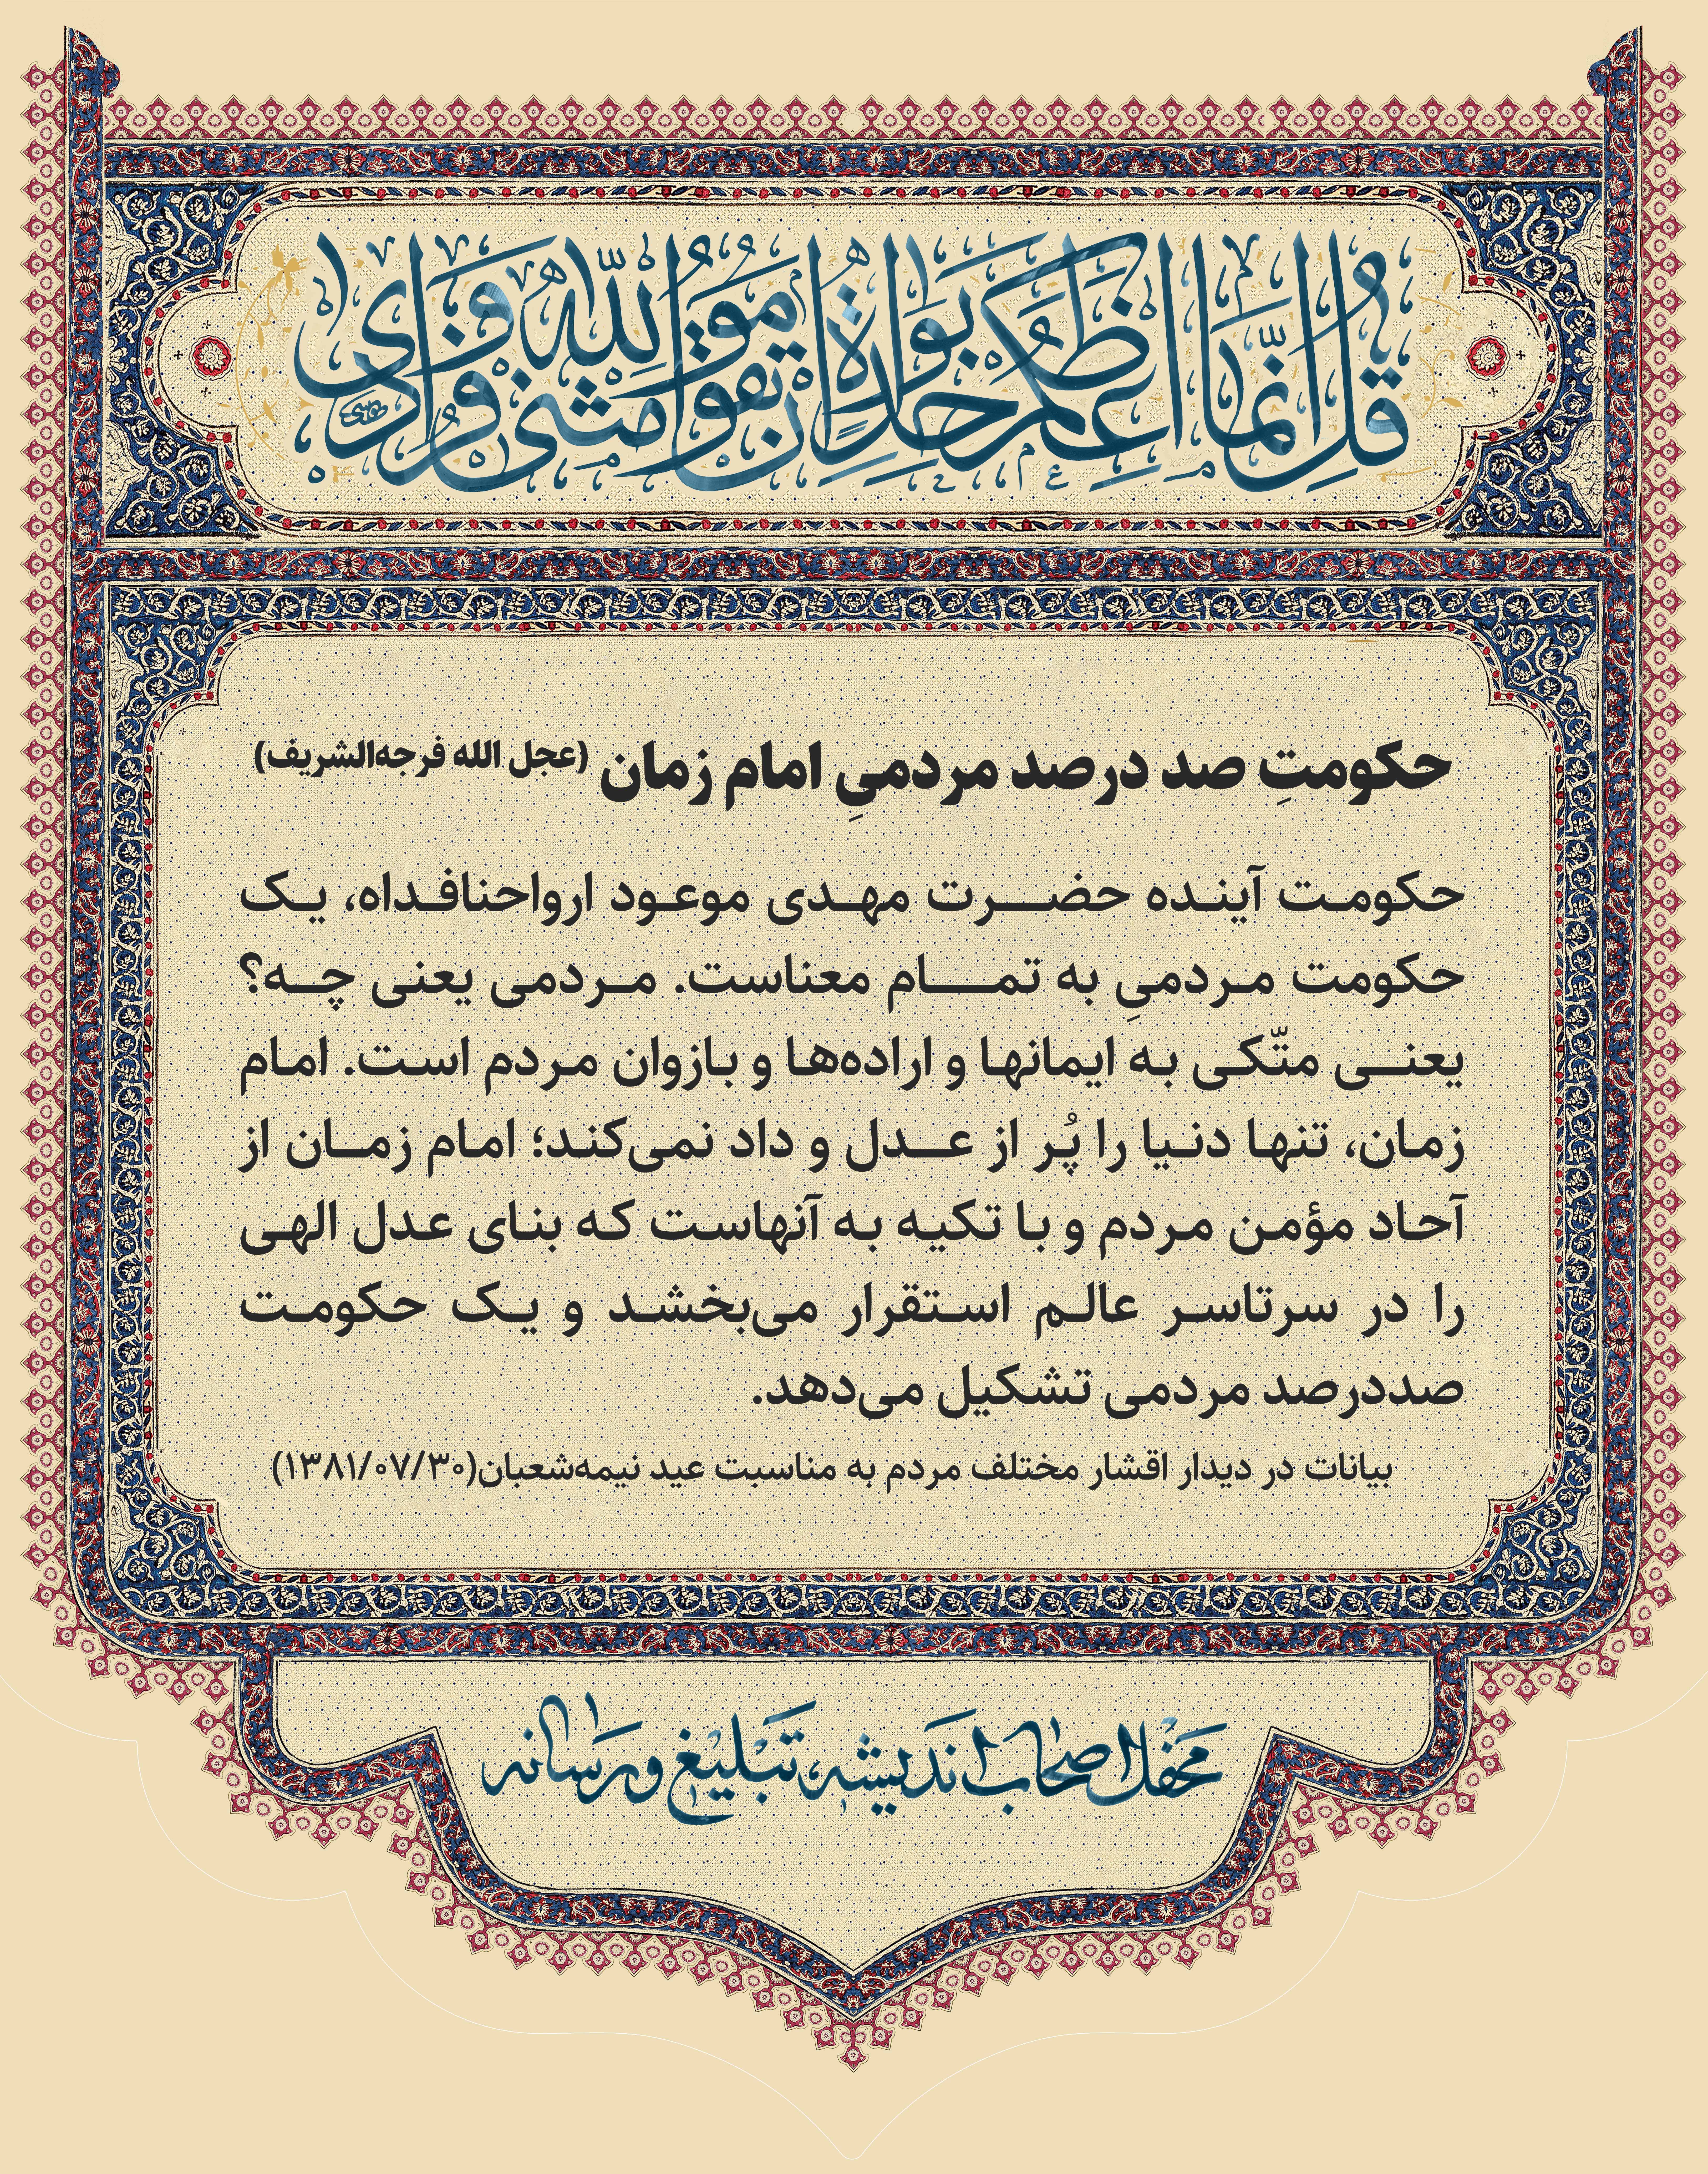 قُل اِنَّمَا اَعِظُکُم بِوَاحِدَةٍ اَن تَقُومُوا لِلّٰهِ مَثنی وَ فُرَادی
حکومتِ صد درصد مردمیِ امام زمان (عجل الله فرجه‌الشریف)
حکومت آینده حضرت مهدی موعود ارواحنافداه، یک
حکومت مردمیِ به تمام معناست. مردمی یعنی چه؟
یعنی متّکی به ایمانها و اراده‌ها و بازوان مردم است. امام
زمان، تنها دنیا را پُر از عدل و داد نمی‌کند؛ امام زمان از
آحاد مؤمن مردم و با تکیه به آنهاست که بنای عدل الهی
را در سرتاسر عالم استقرار می‌بخشد و یک حکومت
صددرصد مردمی تشکیل می‌دهد.
بیانات در دیدار اقشار مختلف مردم به مناسبت عید نیمه‌شعبان(۱۳۸۱/۰۷/۳۰)
محفل اصحاب اندیشه، تبلیغ و رسانه